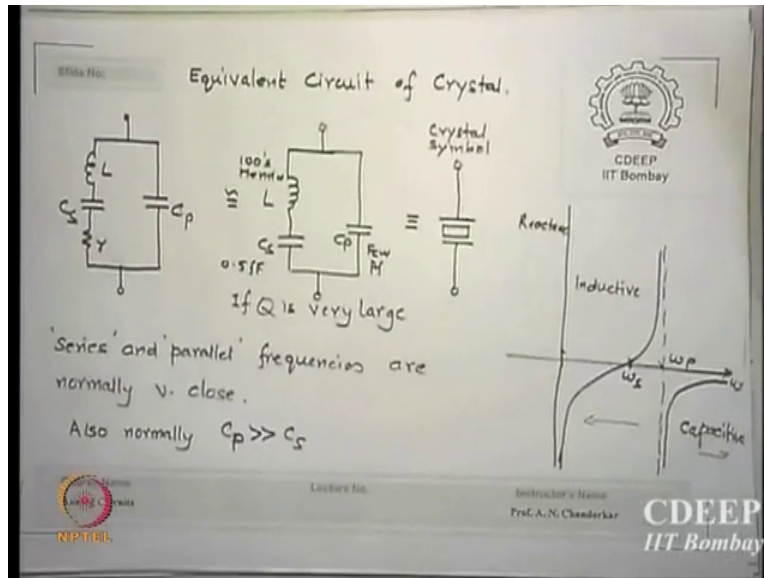 Slide No:
Equivalent Circuit of Crystal.
CDEEP
IIT Bombay
L
Cs
r
Cp
≅
100's
L
Cs
0.5fF
Cp
Few
≡
Crystal
Symbol
If Q is very large
Reactance
Inductive
ωs
ωp
ω
Capacitive
'Series' and 'parallel' frequencies are
normally v. close.
Also normally Cp >> Cs
Course Name
Analog Circuits
NPTEL
Lecture No.
Instructor's Name
Prof. A. N. Chandorkar
CDEEP
IIT Bombay